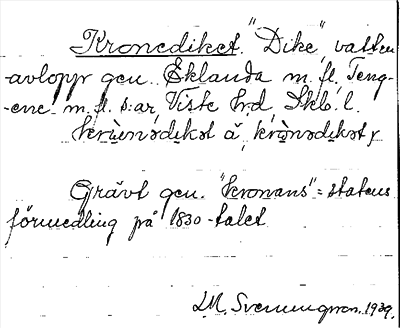 Kronediket. "Dike", vatten
avlopp gen. Eklanda m. fl. Teng-
-ene m. fl. s:ar, Viste hrd, Skb. l.
krɯ̀enədɩkət å, krònədɩkət,
Grävt gen. "kronans" = statens
förmedling på 1830-talet
LM. Svenungsson. 1939.